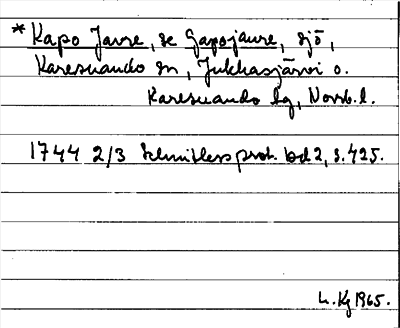 * Kapo Javre, se Gapojaure, sjö,
Karesuando sn, Jukkasjärvi o.
Karesuando lg, Norrb. l.
1744 2/3 Schnitlers prot. bd 2, s. 425.
L. Kg 1965.